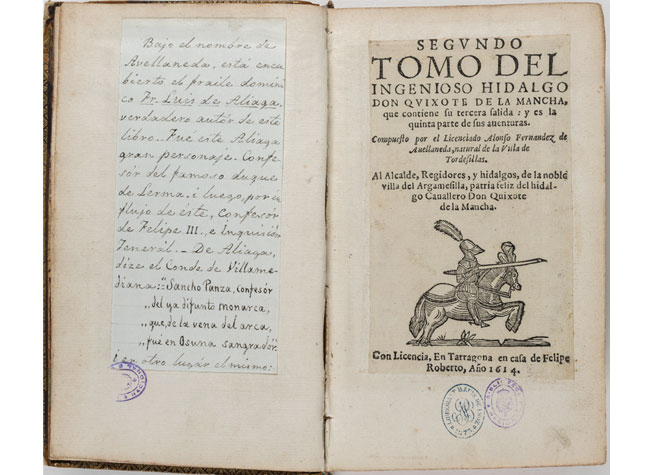 Bajo el nombre de
Avellaneda, está encu
bierto el fraile domini
co Fr. Luis de Aliaga,
verdadero autór de este
libro. Fue este Aliaga
gran personaje. Confe
sór del famoso duque
de Lerma, i luego, por in
flujo de éste, confesór
de Felipe III., e inquisidór
Jenerál. — De Aliaga,
dize el Conde de Villame
diana: "Sancho Panza, confesór
„ del ya difunto monarca,
„ que, de la vena del arca,
„ fue en Osuna sangradór."
i en otro lugár el mismo:
SEGVNDO
TOMO DEL
INGENIOSO HIDALGO
DON QVIXOTE DE LA MANCHA,
que contiene su tercera salida: y es la
quinta parte de sus auenturas.
Compuesto por el Licenciado Alonso Fernandez de
Auellaneda, natural de la Villa de
Tordesillas.
Al Alcalde, Regidores, y hidalgos, de la noble
villa del Argamesilla, patria feliz del hidal-
go Cauallero Don Quixote
de la Mancha.
Con Licencia, En Tarragona en casa de Felipe
Roberto, Año 1614.